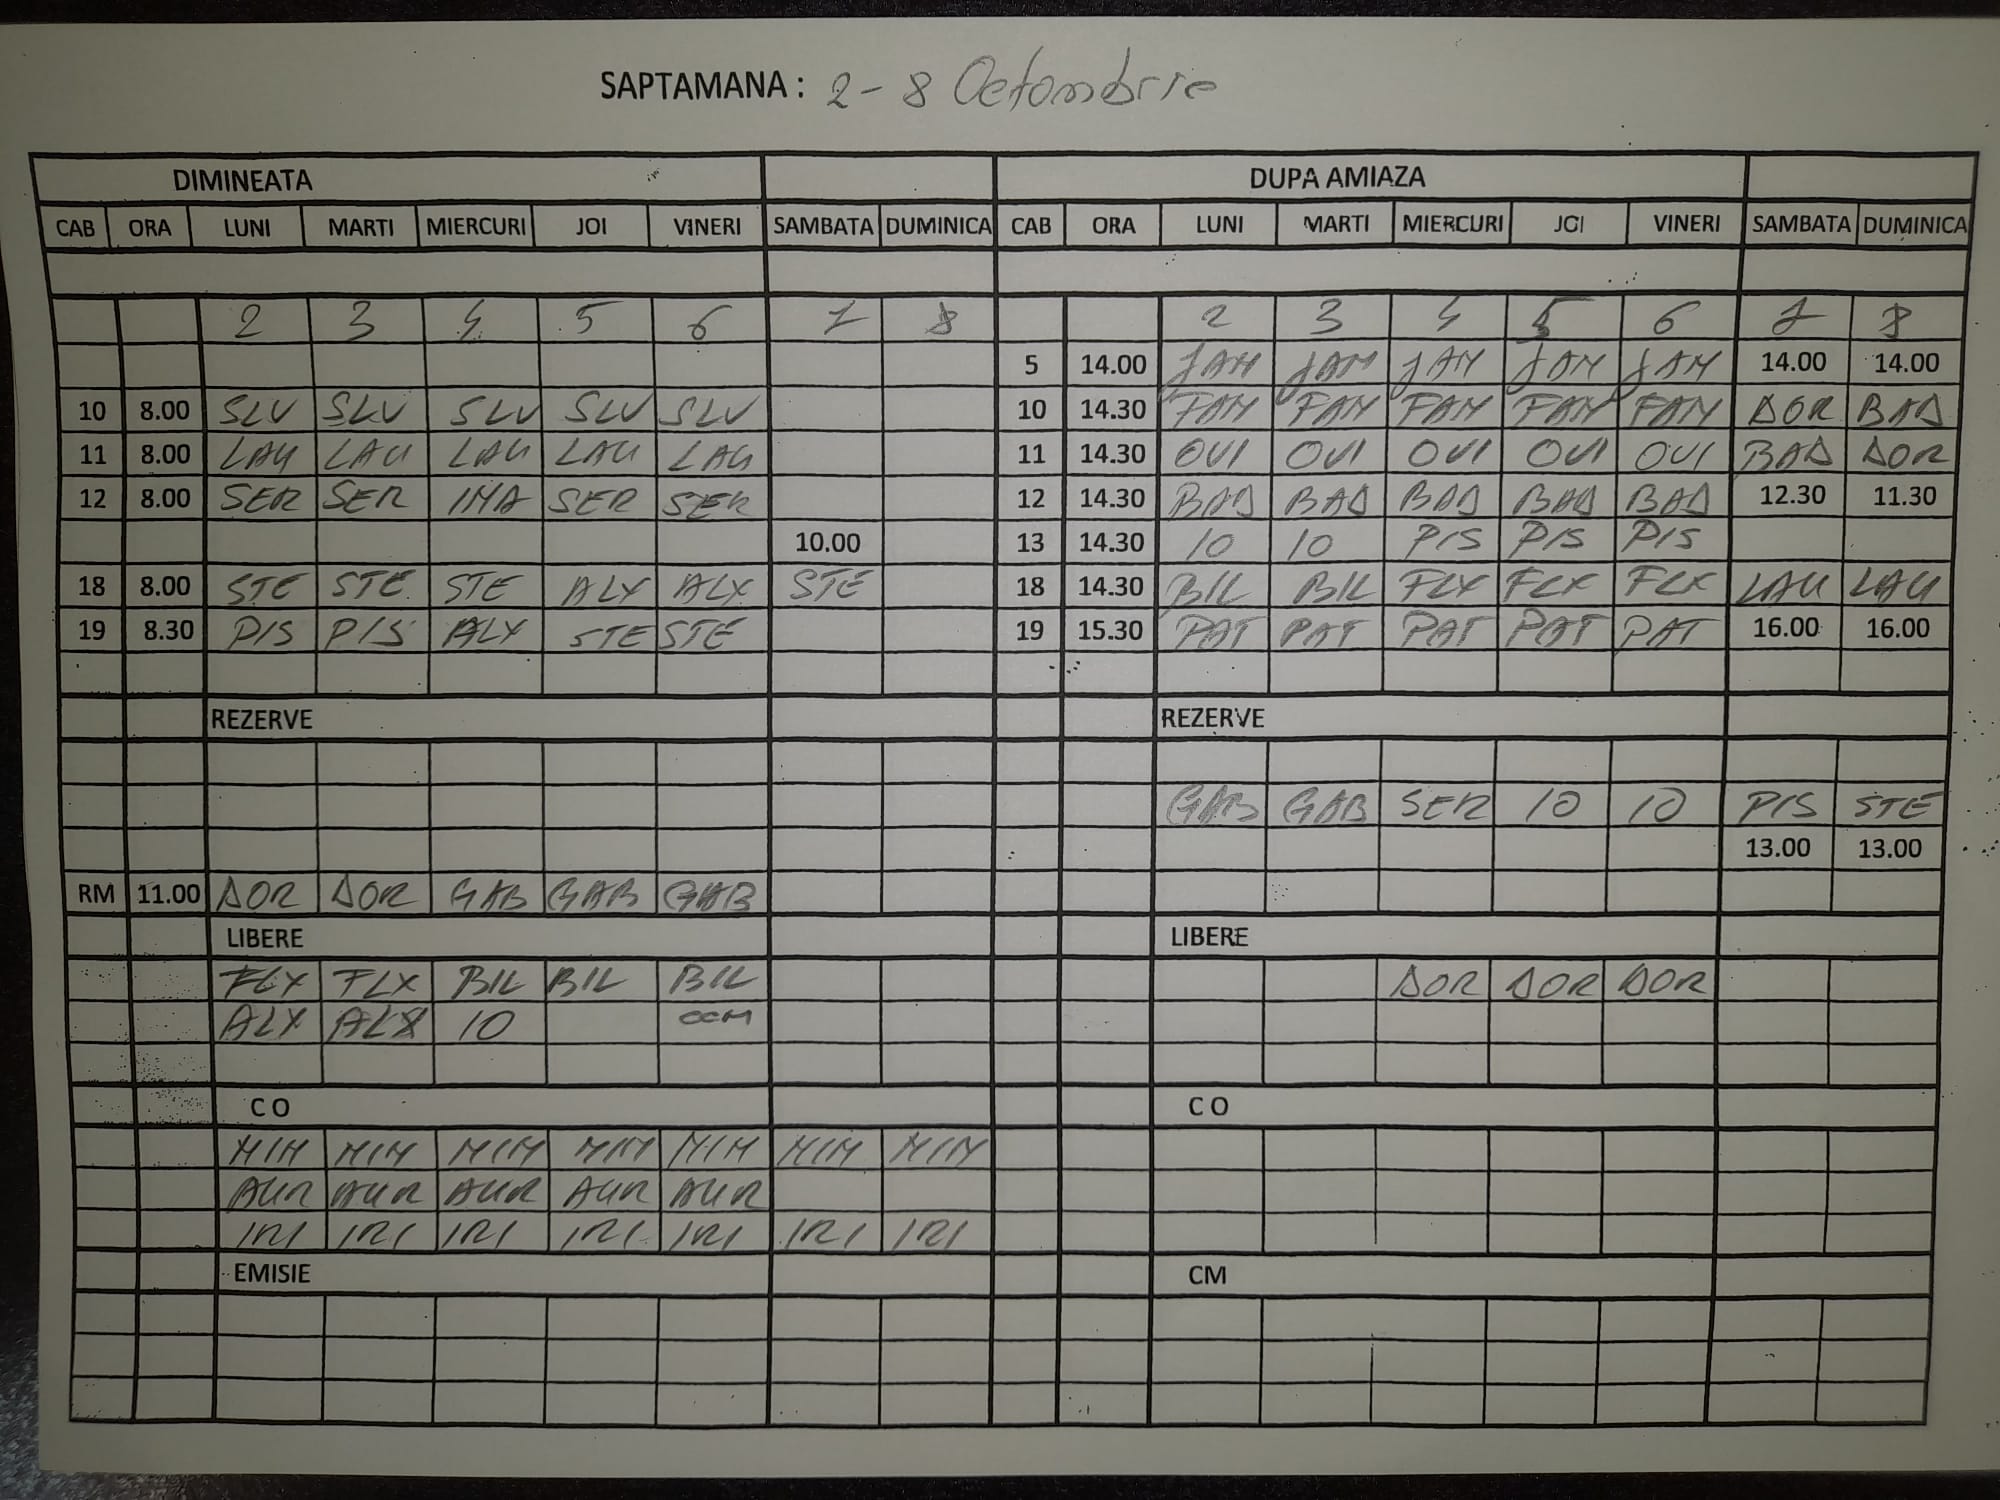 SAPTAMANA : 2 - 8 Octombrie
DIMINEATA DUPA AMIAZA
CAB ORA LUNI MARTI MIERCURI JOI VINERI SAMBATA DUMINICA CAB ORA LUNI MARTI MIERCURI JOI VINERI SAMBATA DUMINICA
2 3 4 5 6 7 8 2 3 4 5 6 7 8
5 14.00 JAM JAM JAM JAM JAM 14.00 14.00
10 8.00 SLV SLV SLV SLV SLV 10 14.30 FAM FAM FAM FAM FAM DOR BAD
11 8.00 LAU LAU LAU LAU LAU 11 14.30 OVI OVI OVI OVI OVI BAD DOR
12 8.00 SER SER IMA SER SER 12 14.30 BAD BAD BAD BAD BAD 12.30 11.30
10.00 13 14.30 10 10 PIS PIS PIS
18 8.00 STE STE STE ALX ALX STE 18 14.30 BIL BIL FLX FLX FLX LAU LAU
19 8.30 PIS PIS ALX STE STE 19 15.30 PAT PAT PAT PAT PAT 16.00 16.00
REZERVE REZERVE
GAB GAB SER 10 10 PIS STE
13.00 13.00
RM 11.00 DOR DOR GAB GAB GAB
LIBERE LIBERE
FLX FLX BIL BIL BIL DOR DOR DOR
ALX ALX 10
C O C O
MIM MIM MIM MIM MIM MIM MIM
AUR AUR AUR AUR AUR
IRI IRI IRI IRI IRI IRI IRI
EMISIE CM